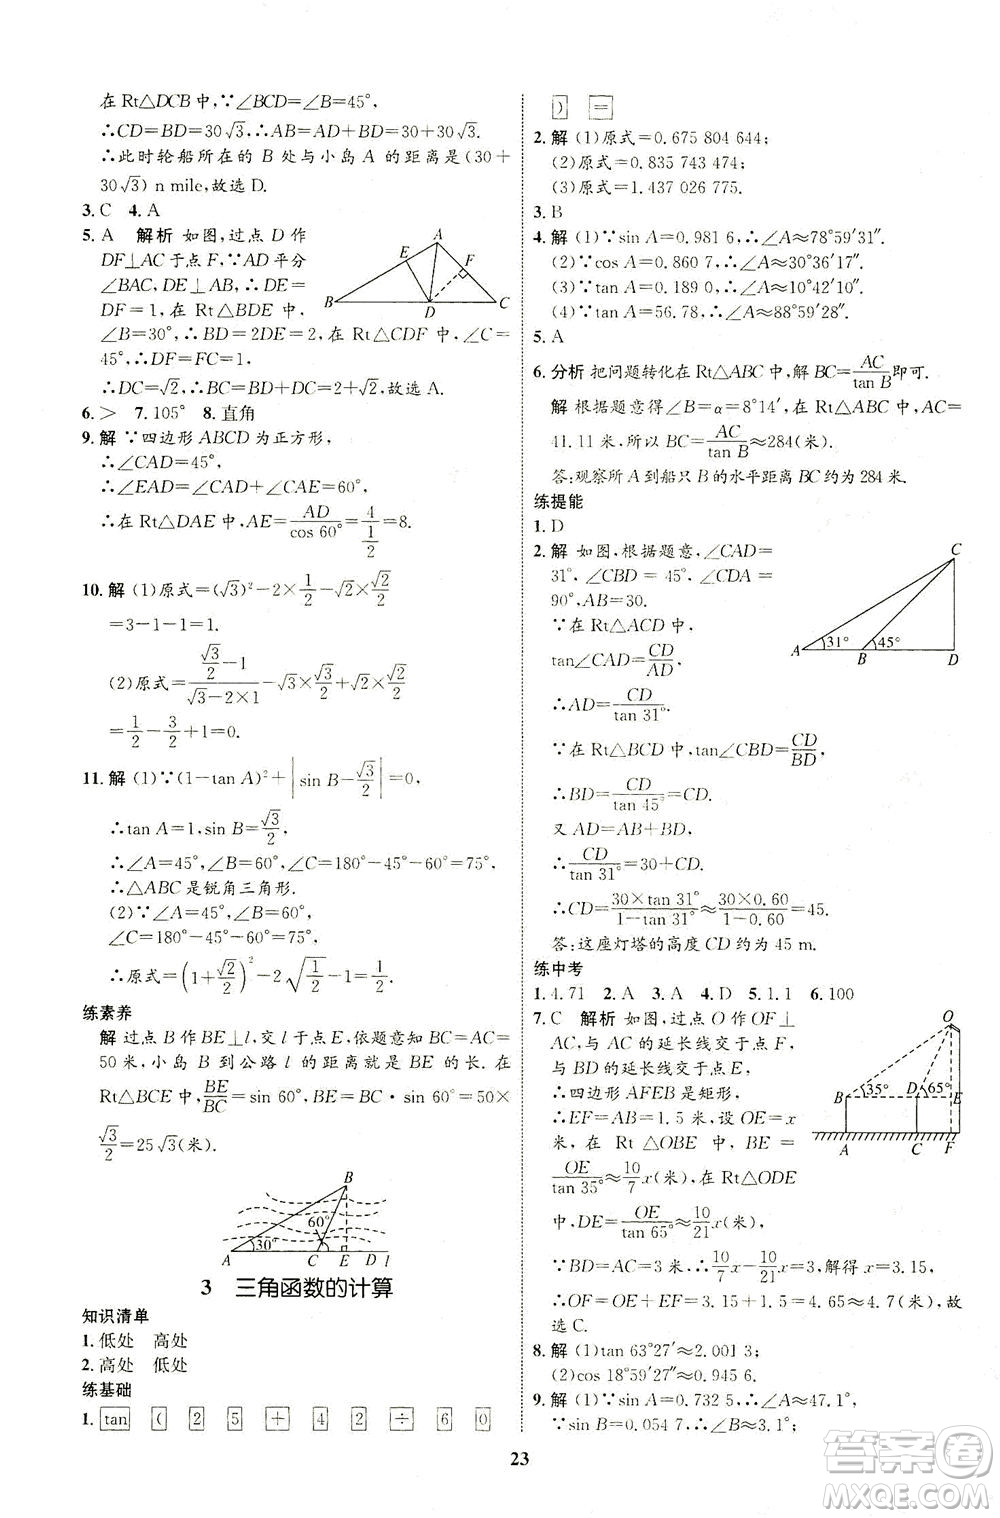 在 Rt△DCB 中,∵∠BCD=∠B=45°,
∴CD=BD=30√3,∴AB=AD+BD=30+30√3,
∴此时轮船所在的 B 处与小岛 A 的距离是(30+
30√3) n mile,故选 D.
3. C 4. A
5. A 解析 如图,过点 D 作
DF⊥AC 于点 F,∵AD 平分
∠BAC,DE⊥AB,∴DF=
DE=1,在 Rt△BDE 中,
∠B=30°,∴BD=2DE=2,在 Rt△CDF 中,∠C=
45°,∴DF=FC=1,
∴DC=√2,∴BC=BD+DC=2+√2,故选 A.
A
E
F
B
D
C
6. > 7. 105° 8. 直角
9. 解 ∵四边形 ABCD 为正方形,
∴∠CAD=45°,
∴∠EAD=∠CAD+∠CAE=60°,
∴在 Rt△DAE 中,AE=AD/cos 60°=4/(1/2)=8.
10. 解 (1)原式=(√3)²-2×1/2-√2×√2/2
=3-1-1=1.
(2)原式=(√3/2-1)/(√3-2×1)-√3×√3/2+√2×√2/2
=1/2-3/2+1=0.
11. 解 (1)∵(1-tan A)²+|sin B-√3/2|=0,
∴tan A=1,sin B=√3/2,
∴∠A=45°,∠B=60°,∠C=180°-45°-60°=75°,
∴△ABC 是锐角三角形.
(2)∵∠A=45°,∠B=60°,
∠C=180°-45°-60°=75°,
∴原式=(1+√2/2)²-2√(1/2)-1=1/2.
练素养
解 过点 B 作 BE⊥l,交 l 于点 E,依题意知 BC=AC=
50 米,小岛 B 到公路 l 的距离就是 BE 的长.在
Rt△BCE 中,BE/BC=sin 60°,∴BE=BC·sin 60°=50×
√3/2=25√3(米).
B
60°
30°
A C E D l
3 三角函数的计算
知识清单
1. 低处 高处
2. 高处 低处
练基础
1. tan ( 2 5 + 4 2 ÷ 6 0
) =
2. 解 (1)原式=0.675 804 644;
(2)原式=0.835 743 474;
(3)原式=1.437 026 775.
3. B
4. 解 (1)∵sin A=0.981 6,∴∠A≈78°59′31″.
(2)∵cos A=0.860 7,∴∠A≈30°36′16″.
(3)∵tan A=0.189 0,∴∠A≈10°42′10″.
(4)∵tan A=56.78,∴∠A≈88°59′31″.
5. A
6. 分析 把问题转化在 Rt△ABC 中,解 BC=AC/tan B即可.
解 根据题意得∠B=α=8°14′,在 Rt△ABC 中,AC=
41.11 米,所以 BC=AC/tan B≈284(米).
答:观察所 A 到船只 B 的水平距离 BC 约为 284 米.
练提能
1. D
2. 解 如图,根据题意,∠CAD=
31°,∠CBD=45°,∠CDA=
90°,AB=30.
∵在 Rt△ACD 中,
tan∠CAD=CD/AD,
∴AD=CD/tan 31°.
∵在 Rt△BCD 中,tan∠CBD=CD/BD,
∴BD=CD/tan 45°=CD.
又 AD=AB+BD,
∴CD/tan 31°=30+CD.
∴CD=(30×tan 31°)/(1-tan 31°)≈(30×0.60)/(1-0.60)=45.
答:这座灯塔的高度 CD 约为 45 m.
C
31°
45°
A B D
练中考
1. 4.71 2. A 3. A 4. D 5. 1.1 6. 100
7. C 解析 如图,过点 O 作 OF⊥
AC,与 AC 的延长线交于点 F,
与 BD 的延长线交于点 E,
∴四边形 AFEB 是矩形,
∴EF=AB=1.5 米,设 OE=x
米,在 Rt△OBE 中,BE=
OE/tan 35°≈10/7x(米),在 Rt△ODE
中,DE=OE/tan 65°≈10/21x(米),
∵BD=BE-DE,∴10/7x-10/21x=3,解得 x=3.15,
∴OF=OE+EF=3.15+1.5≈4.7(米),故
选 C.
O
35°
65°
B D E
A C F
8. 解 (1)tan 63°27′≈2.001 3;
(2)cos 18°59′27″≈0.945 6.
9. 解 (1)∵sin A=0.732 5,∴∠A≈47.1°.
∵sin B=0.054 7,∴∠B≈3.1°.
23
答案圈
MXQE.COM